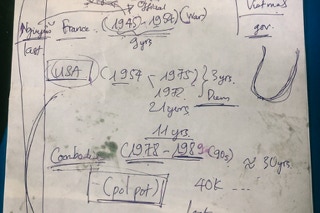 Official
Vietnam
Nguyễn France (1945 - 1954) (War)
gov.
last
9 yrs
USA (1954 - 1975) 3 yrs.
1972
21 years
11 yrs
(1978 - 1989 (90s) ≈ 30 yrs
(pol pot)
40K ...